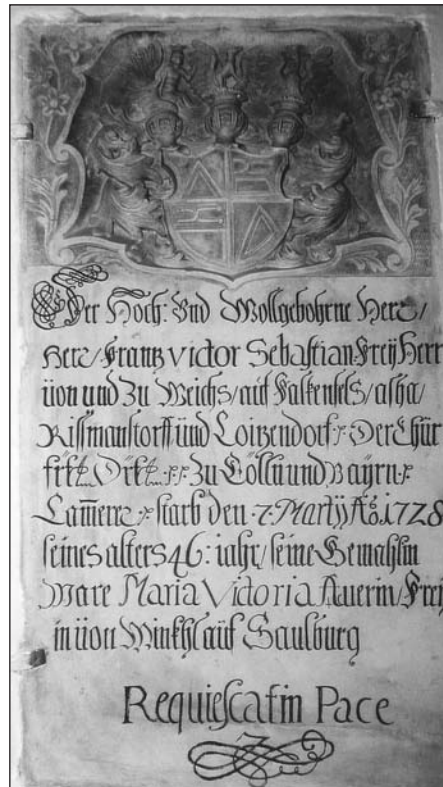 Der Hoch: Und Wollgebohrne Herr/
Herr/ Frantz victor Sebastian Freÿ Herr
üon und Zu Weichs/ auf Falkenfels/ asha/
Rissmanstorff und Loitzendorf ⁊. Der Chür
frstl. Drstl. ⁊. ⁊. Zu Cölln und Bayrn ⁊.
Cam̄erer ⁊. starb den 7. Martÿ Ao. 1728
seines alters 46: iahr/ seine Gemahlin
Ware Maria Victoria Auerin/ Freÿ
in üon Winkhl auf Saulburg
Requiescat in Pace